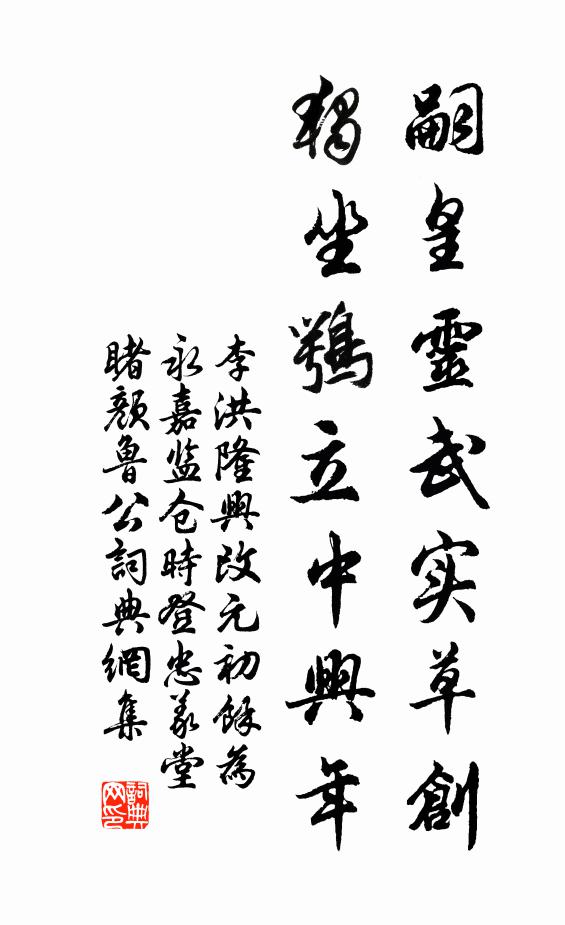 嗣皇靈武实草創
獨坐鶚立中興年
李洪隆興改元初餘為
永嘉监仓時登忠義堂
睹顏魯公詞典網集
詞典网印